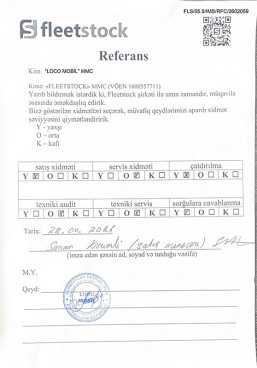 FLS/05.5/IMS/RFC/2602059
fleetstock
Referans
Kim: "LOCO MOBIL" MMC
Kimə: «FLEETSTOCK» MMC (VÖEN 1600557711)
Yazıb bildirmək istərdik ki, Fleetstock şirkəti ilə uzun zamandır, müqavilə
əsasında əməkdaşlıq edirik.
Bizə göstərilən xidmətləri seçərək, müvafiq qeydlərimizi aparıb xidmət
səviyyəsini qiymətləndiririk.
Y - yaxşı
O – orta
K – kafi
satış xidməti servis xidməti çatdırılma
Y O K Y O K Y O K
texniki audit texniki servis sorğulara cavablanma
Y O K Y O K Y O K
Tarix: 28.04.2026
(satış meneceri)
(imza edən şəxsin ad, soyad və tutduğu vəzifə)
M.Y.
Qeyd:
LOCO
MOBIL